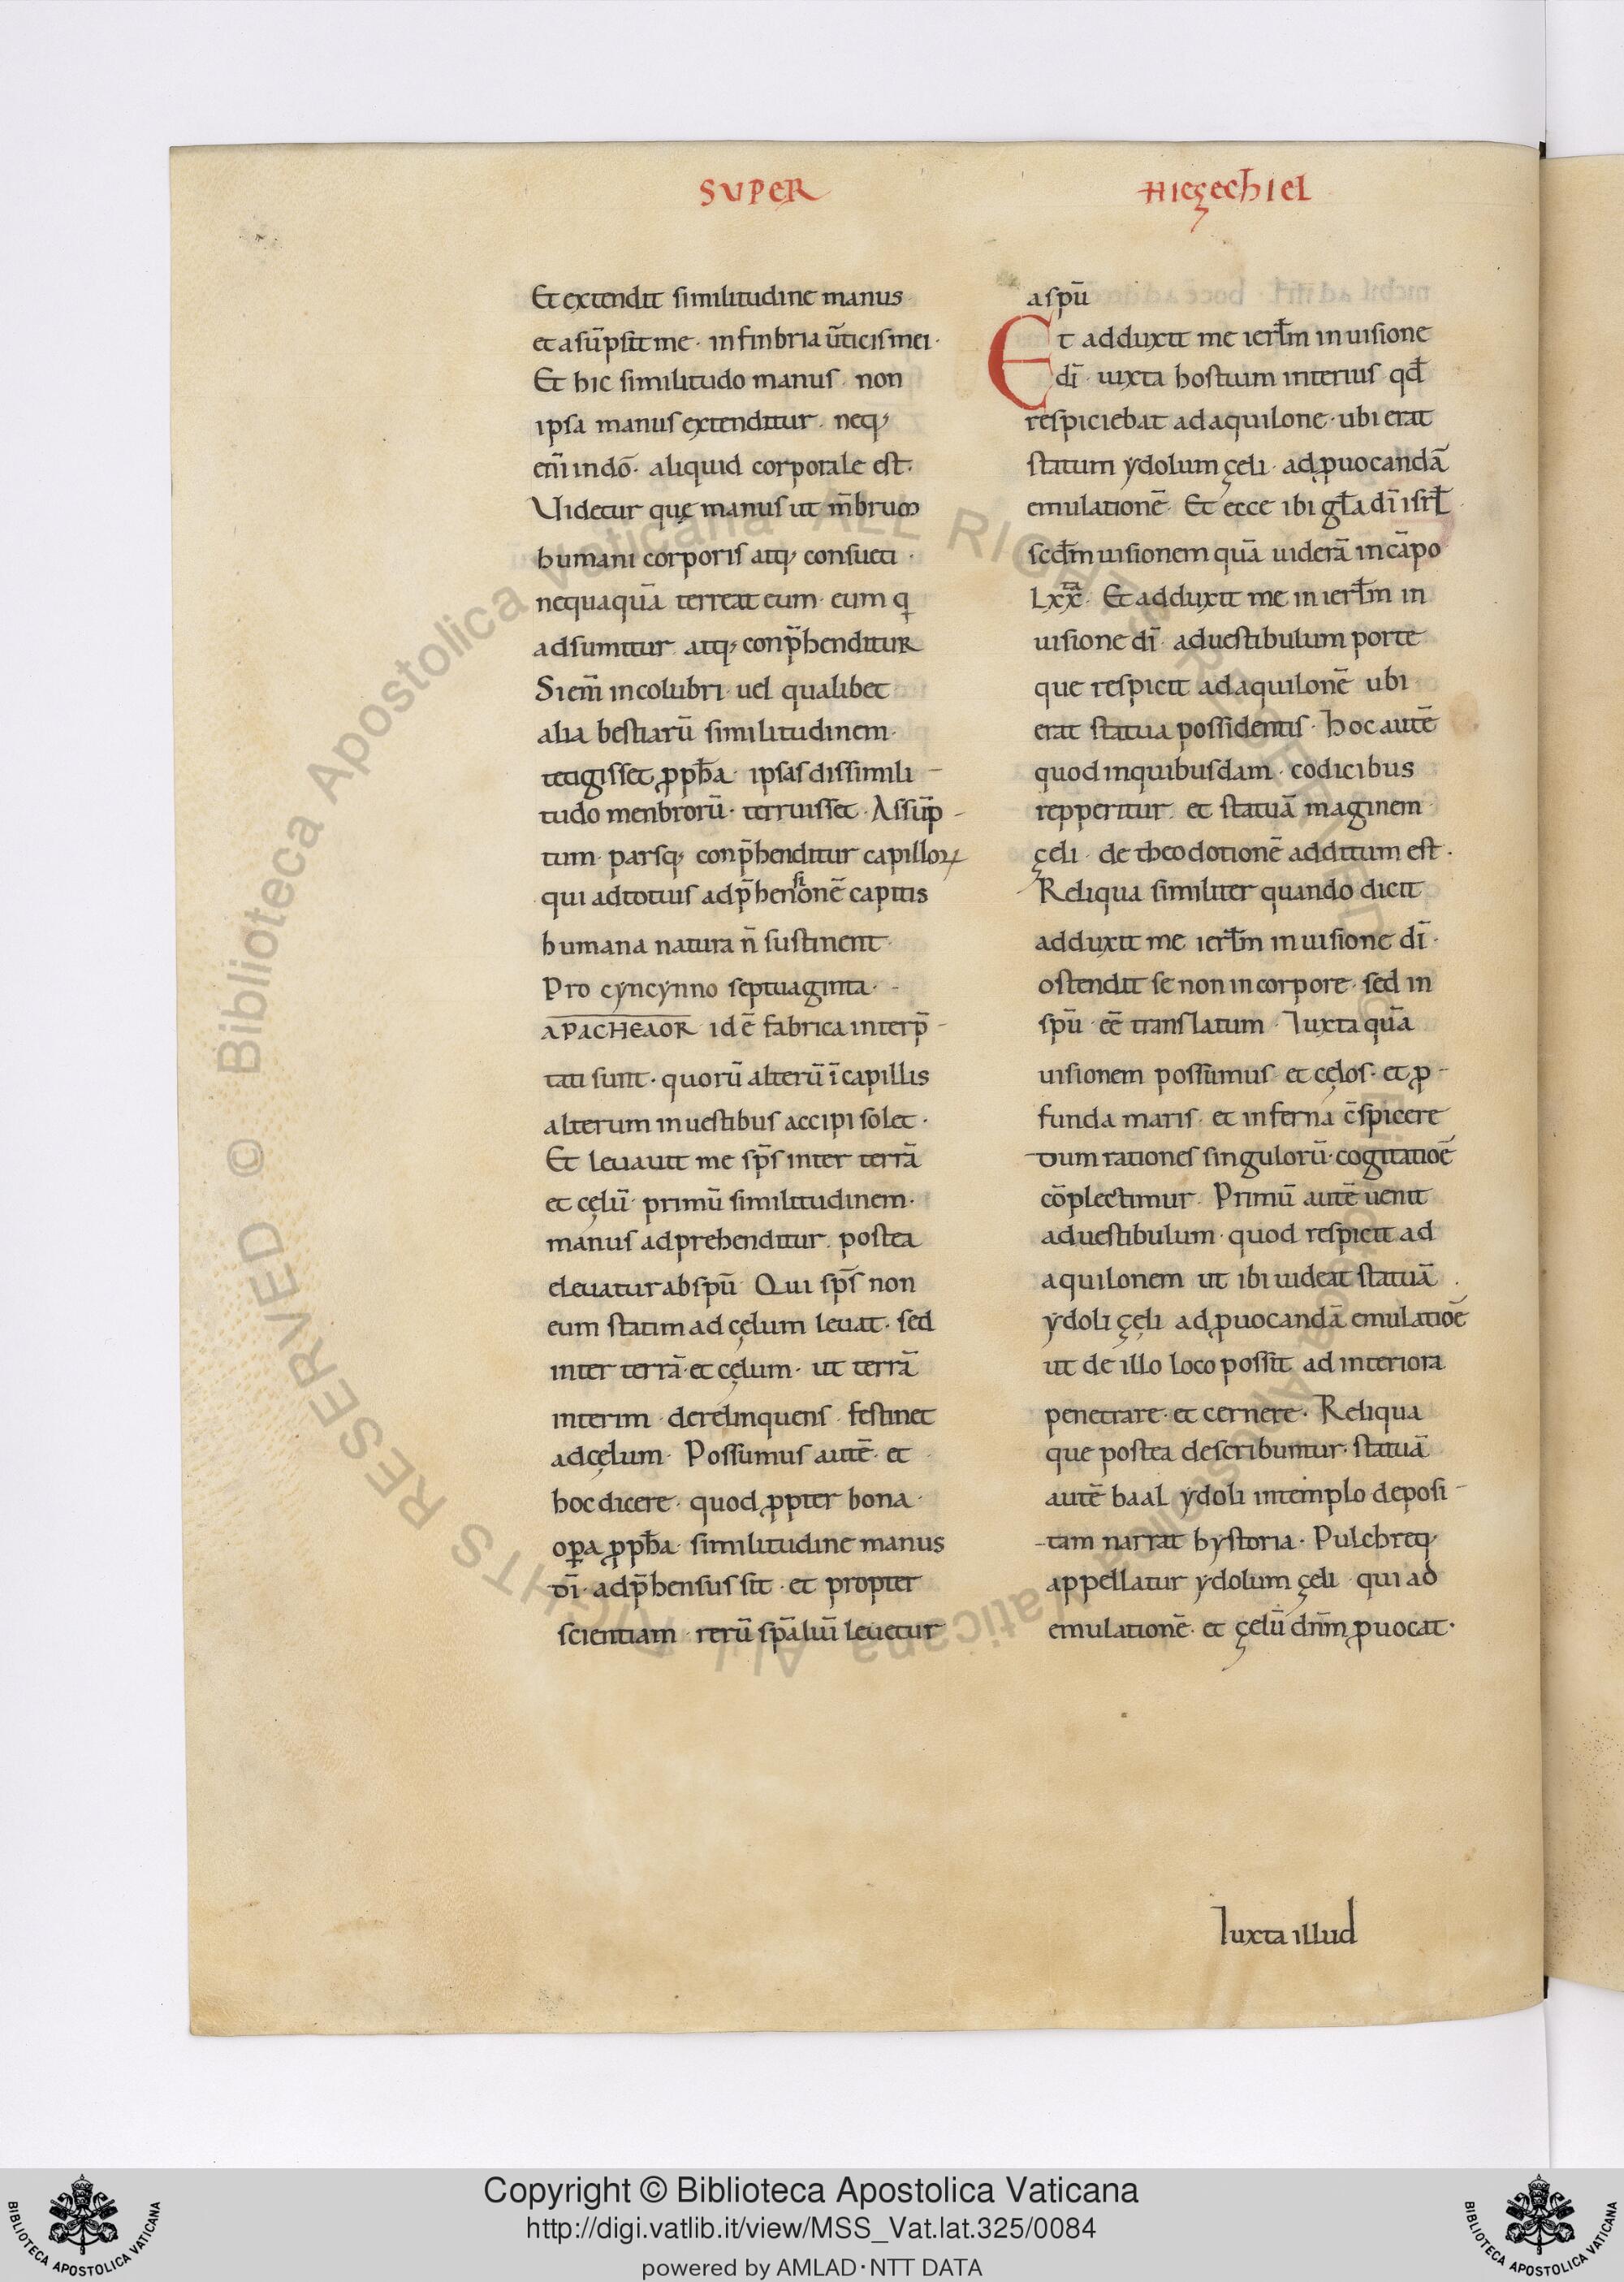 SUPER
HIEZECHIEL
Et extendit similitudine manus
et asũpsit me· in finbria ũticis mei·
Et hic similitudo manus· non
ipsa manus extenditur· neq;
eni̅ in do̅· aliquid corporale est·
Uidetur quę manus ut m̅brum
humani corporis atq; consueti·
nequaqua̅ terreat eum· eum q
adsumitur atq; conp̅henditur
Si eni̅ in colubri· uel qualibet
alia bestiaru̅ similitudinem·
tetigisset ꝓpħa· ipsas dissimili-
tudo menbroru̅· terruisset· Assu̅p-
tum· parsq; conp̅henditur capilloꝝ
qui ad totius adp̅hensione̅ capitis
humana natura n̅ sustinent·
Pro cyncynno septuaginta·
APACHEAOR id e̅ fabrica interp̅-
tati sunt· quoru̅ alteru̅ i̅ capillis
alterum in uestibus accipi solet·
Et leuauit me sp̅s inter terra̅
et cęlu̅· primu̅ similitudinem·
manus adprehenditur· postea
eleuatur ab spu̅ Qui sp̅s non
eum statim ad cęlum leuat· sed
inter terra̅· et cęlum· ut terra̅
interim· derelinquens· festinet
ad cęlum· Possumus aute̅· et
hoc dicere· quod ꝓpter bona·
oꝑa ꝓpħa· similitudine manus
di̅· adp̅hensus sit· et propter
scientiam· reru̅ sp̅aliu̅ leuetur
a spu̅
Et adduxit me ierł̅m in uisione
di̅· iuxta hostium interius qđ
respiciebat ad aquilone· ubi erat
statum ydolum çeli· ad ꝓuocanda̅
emulatione̅· Et ecce ibi gła di̅ isrł
scd̅m uisionem qua̅ uidera̅ in ca̅po
Lxx̅ta· Et adduxit me in ierł̅m in
uisione di̅· ad uestibulum porte
que respicit ad aquilone̅ ubi
erat statua possidentis· Hoc aute̅
quod in quibusdam· codicibus
repperitur· et statua̅ maginem
çeli· de theodotione̅ additum est·
Reliqua similiter quando dicit
adduxit me ierł̅m in uisione di̅·
ostendit se non in corpore· sed in
spu̅· ee̅ translatum· Iuxta qua̅
uisionem possumus et cęlos· et ꝓ-
funda maris· et inferna c̅spicere
dum rationes singuloru̅· cogitatioe̅
co̅plectimur· Primu̅ aute̅ uenit
ad uestibulum· quod respicit ad
aquilonem ut ibi uideat statua̅·
ydoli çęli ad ꝓuocanda̅ emulatioe̅
ut de illo loco possit ad interiora
penetrare· et cernere· Reliqua
que postea describuntur· statua̅
aute̅ baal ydoli in templo deposi-
tam narrat hystoria· Pulchreq·
appellatur ydolum çeli· qui ad
emulatione̅· et çelu̅ dn̅m ꝓuocat·
Iuxta illud
Copyright © Biblioteca Apostolica Vaticana
http://digi.vatlib.it/view/MSS_Vat.lat.325/0084
powered by AMLAD·NTT DATA